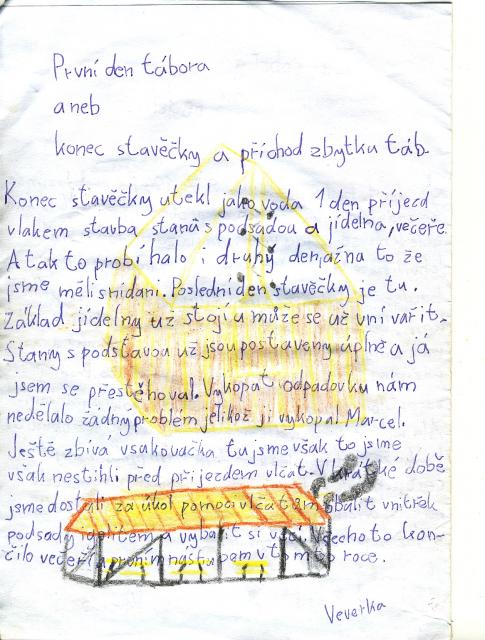 První den tábora
aneb
konec stavěčky a příchod zbytku táb.
Konec stavěčky utekl jako voda 1 den příjezd
vlakem stavba stanů s podsadou a jídelna, večeře.
A tak to probíhalo i druhý den, až na to že
jsme měli snídani. Poslední den stavěčky je tu.
Základ jídelny už stojí a může se už v ní vařit.
Stany s podstavou už jsou postaveny úplně a já
jsem se přestěhoval. Vykopat odpadovku nám
nedělalo žádný problém jelikož ji vykopal Marcel.
Ještě zbívá vsakovačka tu jsme však to jsme
však nestihli před příjezdem vlčat. V krátké době
jsme dostali za úkol pomoci vlčatům obalit vnitřek
podsady igelitem a vybalit si věci. Všechno to kon-
čilo večeří a prvním nástupem v tomto roce.
Veverka